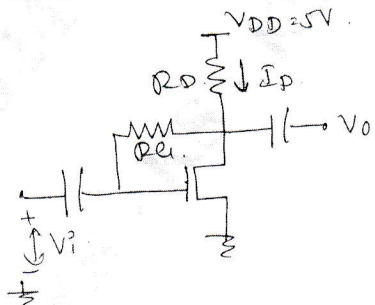 VDD=5V.
RD
ID
RG.
Vo
+
Vi
-